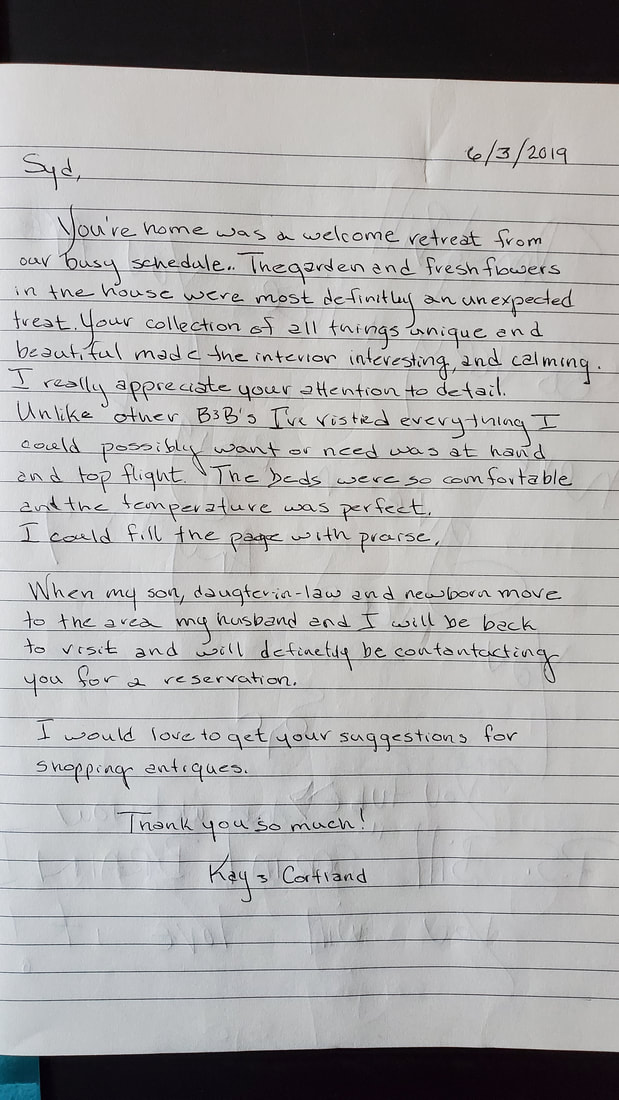 6/3/2019
Syd,
You're home was a welcome retreat from
our busy schedule.. The garden and fresh flowers
in the house were most definitly an unexpected
treat. Your collection of all things unique and
beautiful made the interior interesting, and calming.
I really appreciate your attention to detail.
Unlike other B&B's I've vistied everything I
could possibly want or need was at hand
and top flight. The beds were so comfortable
and the temperature was perfect.
I could fill the page with praise.
When my son, daugter-in-law and newborn move
to the area my husband and I will be back
to visit and will definetdy be contontacting
you for a reservation.
I would love to get your suggestions for
shopping antiques.
Thank you so much!
Kay & Cortland